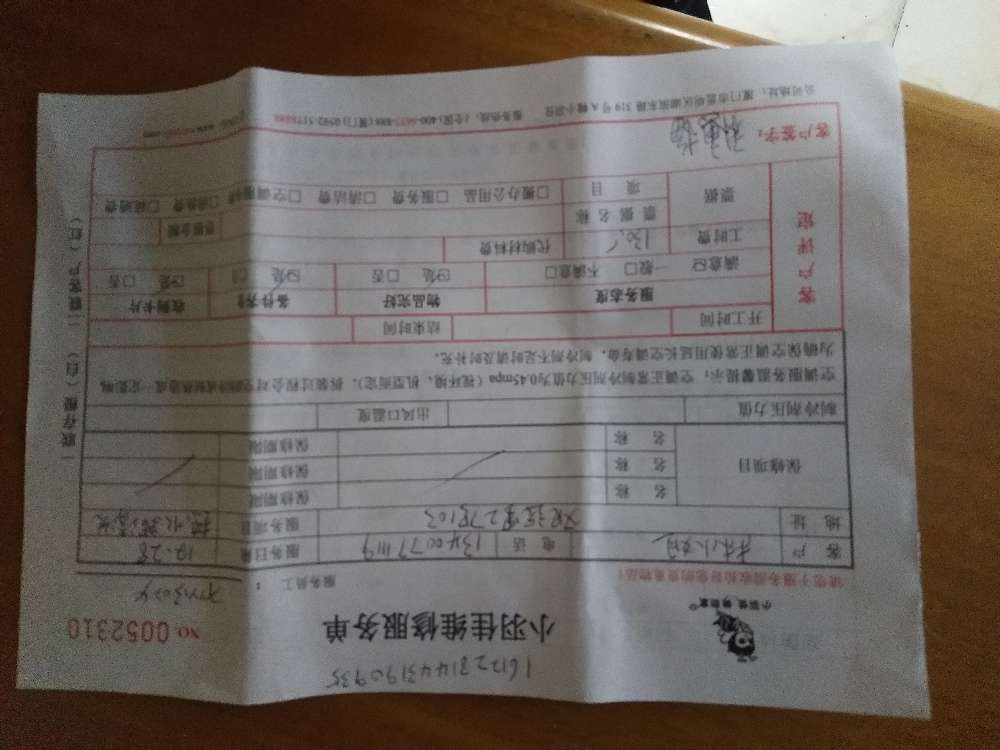 161228144319 0935
小羽佳 钢管家
小羽佳维修服务单
NO. 0052310
请您于服务前收检好您的贵重物品！ 服务员工：
客 户 林小姐 电 话 13400771119 服务日期 12.28
地 址 2楼102 服务项目
保修项目 名 称 保修期限
名 称 保修期限
名 称 保修期限
制冷剂压力值 出风口温度
空调服务温馨提示：空调正常制冷剂压力值为0.45mpa（视环境、机型而定），拆装过程会对空调制冷或制热造成一定影响，
为确保空调正常使用延长空调寿命，制冷剂不足时请及时补充。
开工时间 结束时间
客户评定 服务态度 物品完好 备件齐 收到卡片
满意☑ 一般□ 不满意□ ☑是 □否 ☑是 □是 □否
工时费 130 代购材料费
票据 票据名称 票据金额
项 目 □搬办公用品 □服务费 □清洁费 □空调 □消杀费 □疏通费
客户签字：
公司地址：厦门市思明区湖滨东路319号A幢小羽佳 服务热线：(全国)400-
一联存根（白） 二联客户（红）